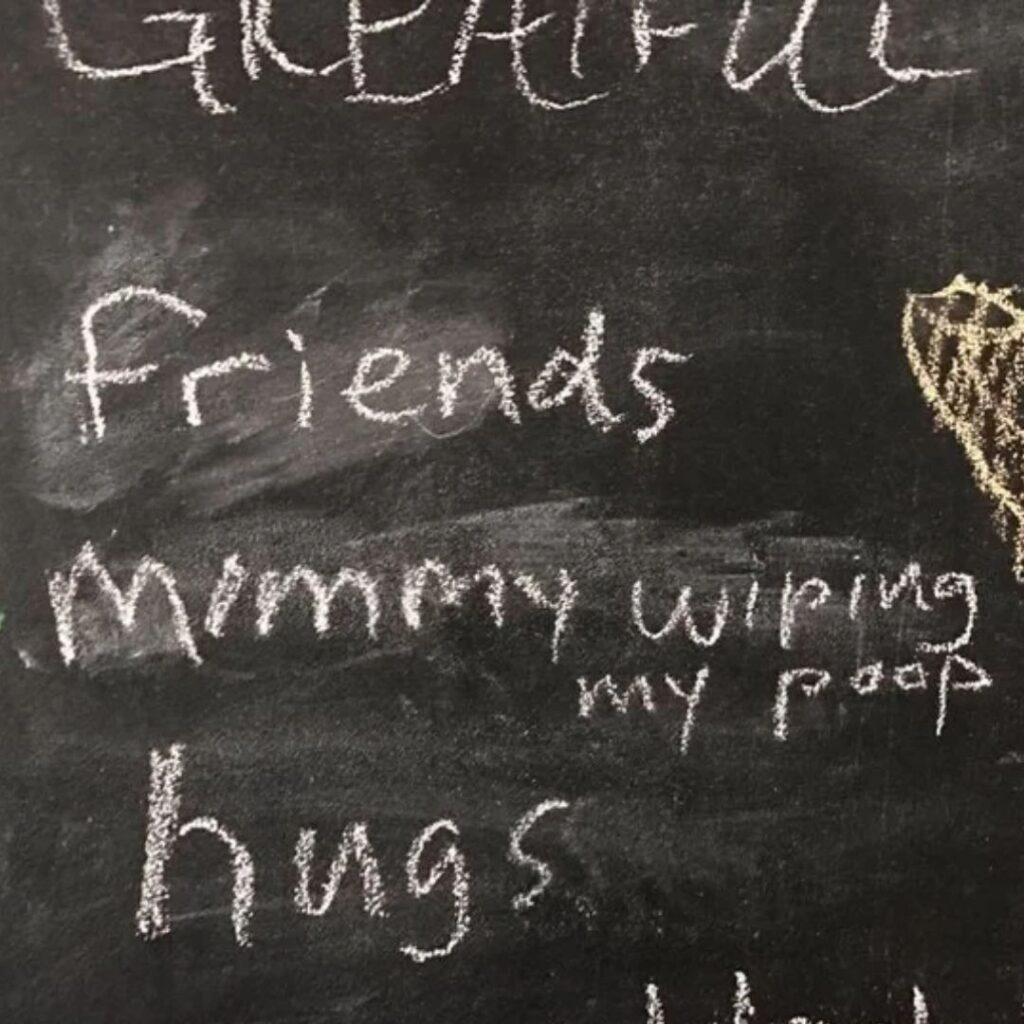 GREATFUL
friends
Mommy wiping
my poop
hugs